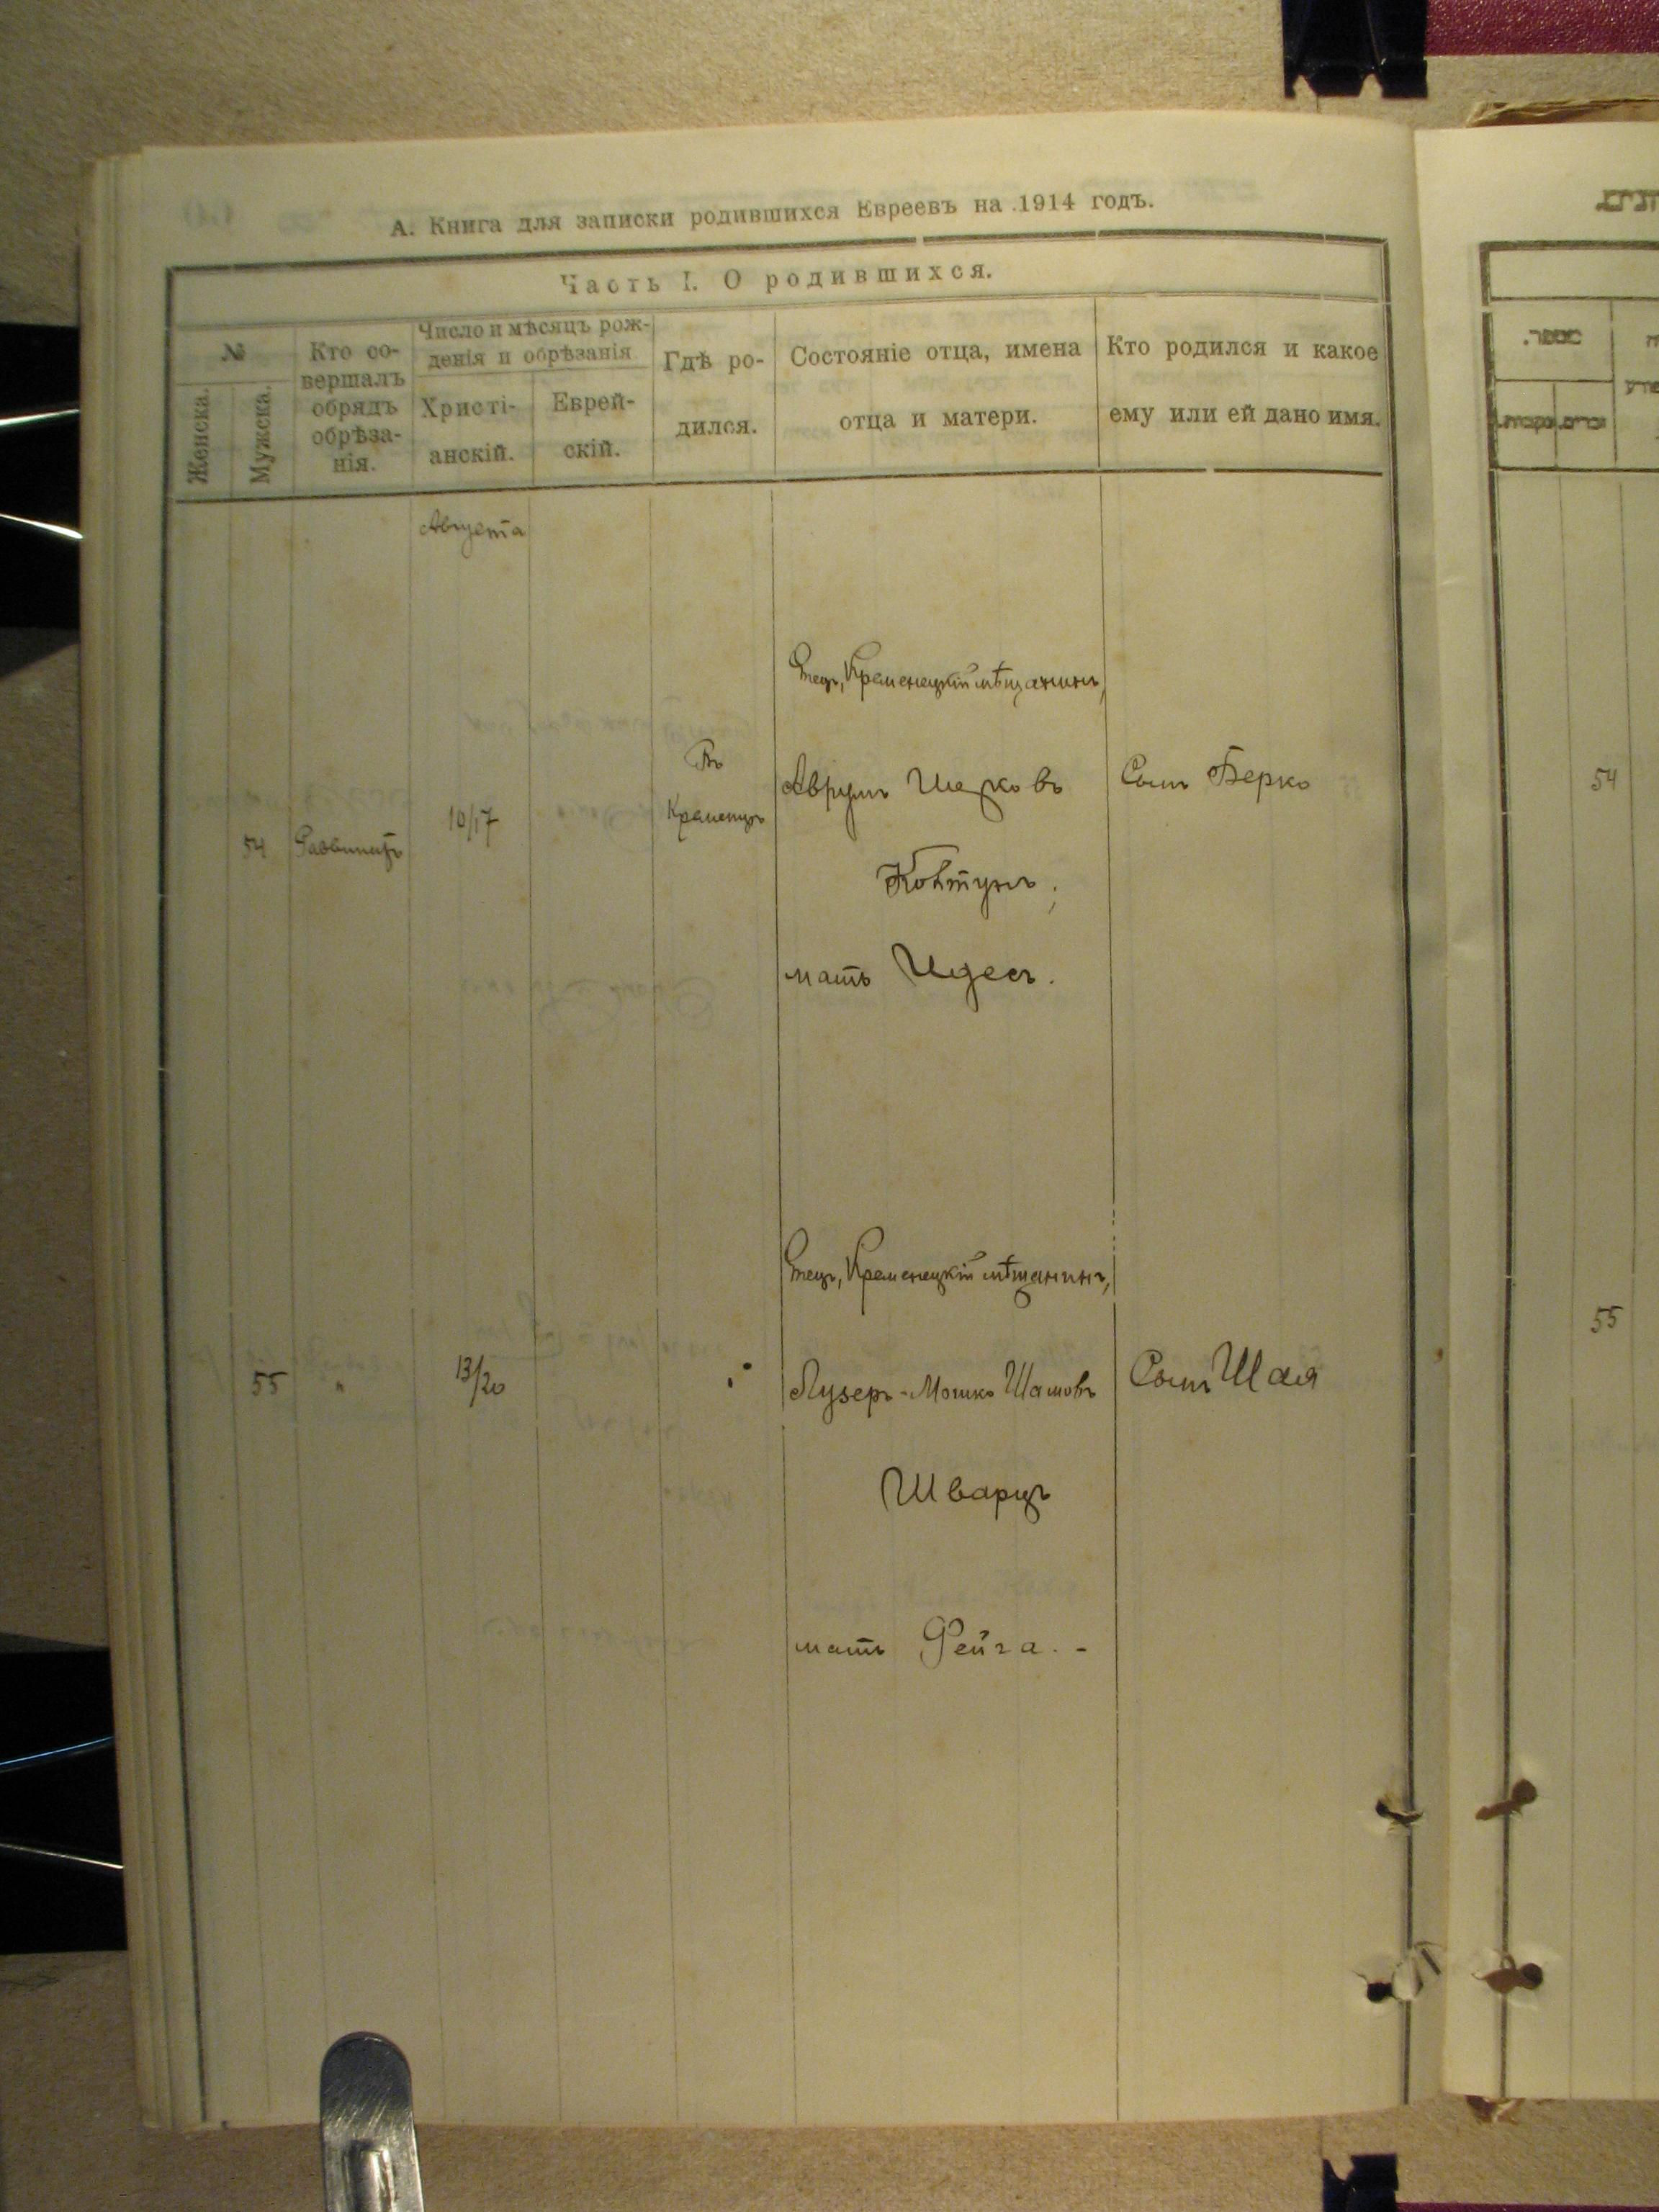 А. Книга для записки родившихся Евреевъ на 1914 годъ.
Часть I. О родившихся.
№
Женска.
Мужска.
Кто со-
вершалъ
обрядъ
обрѣза-
нія.
Число и мѣсяцъ рож-
денія и обрѣзанія
Христі-
анскій.
Еврей-
скій.
Гдѣ ро-
дился.
Состояніе отца, имена
отца и матери.
Кто родился и какое
ему или ей дано имя.
Августа
54
10/17
Въ
Кременцѣ
Отецъ, Кременецкій мѣщанинъ,
Аврумъ
Ковтунъ,
мать Идесъ.
Сынъ Берко
55
"
13/20
Отецъ, Кременецкій мѣщанинъ,
Лузеръ-Мошко
Шварцъ
мать Фейга. -
Сынъ Шая
54
55